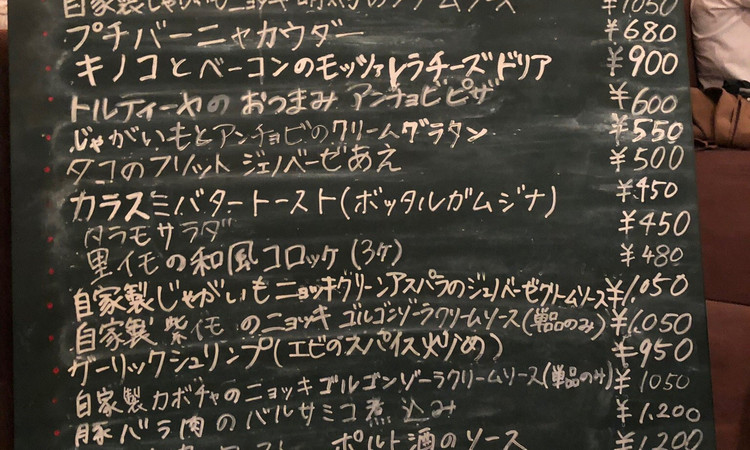 自家製じゃがいもニョッキ のクリームソース ¥1050
プチバーニャカウダー ¥680
キノコとベーコンのモッツァレラチーズドリア ¥900
トルティーヤのおつまみ アンチョビピザ ¥600
じゃがいもとアンチョビのクリームグラタン ¥550
タコのフリット ジェノベーゼあえ ¥500
カラスミバタートースト(ボッタルガムジナ) ¥450
タラモサラダ ¥450
里イモの和風コロッケ(3ケ) ¥480
自家製じゃがいもニョッキグリーンアスパラのジェノベーゼクリームソース ¥1,050
自家製紫イモのニョッキ ゴルゴンゾーラクリームソース(単品のみ) ¥1,050
ガーリックシュリンプ(エビのスパイス炒め) ¥950
自家製カボチャのニョッキゴルゴンゾーラクリームソース(単品のみ) ¥1050
豚バラ肉のバルサミコ煮込み ¥1,200
ポルト酒のソース ¥1,200